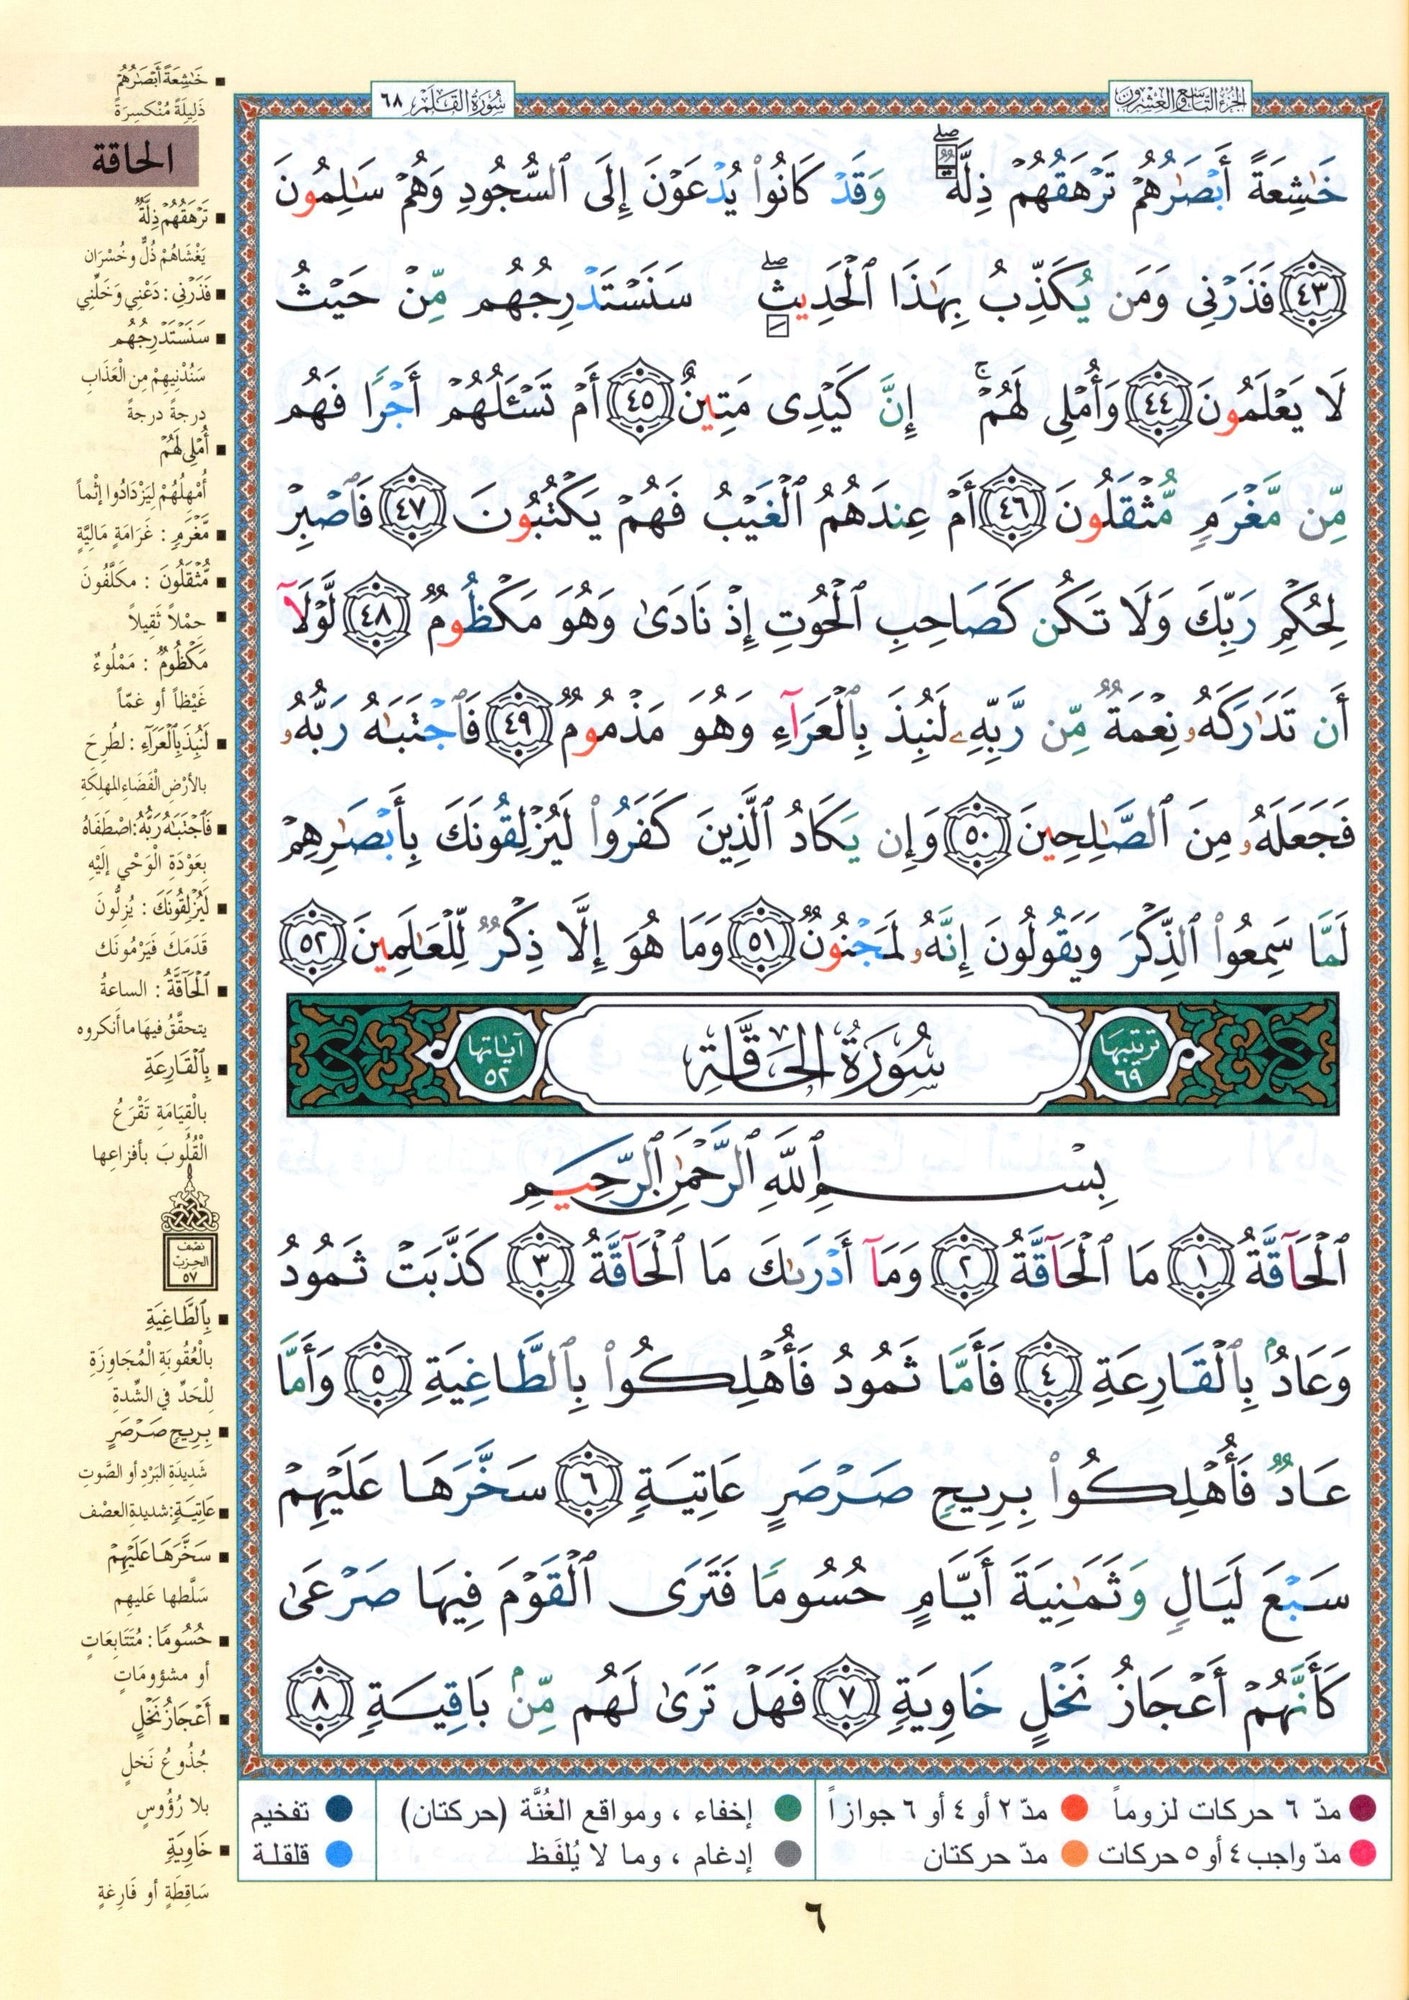 الجزء التاسع والعشرون
سُورَةُ القَلَمِ ٦٨
خَٰشِعَةً أَبْصَٰرُهُمْ تَرْهَقُهُمْ ذِلَّةٌ ۖ وَقَدْ كَانُوا۟ يُدْعَوْنَ إِلَى ٱلسُّجُودِ وَهُمْ سَٰلِمُونَ
٤٣ فَذَرْنِى وَمَن يُكَذِّبُ بِهَٰذَا ٱلْحَدِيثِ ۖ سَنَسْتَدْرِجُهُم مِّنْ حَيْثُ
لَا يَعْلَمُونَ ٤٤ وَأُمْلِى لَهُمْ ۚ إِنَّ كَيْدِى مَتِينٌ ٤٥ أَمْ تَسْـَٔلُهُمْ أَجْرًا فَهُم
مِّن مَّغْرَمٍ مُّثْقَلُونَ ٤٦ أَمْ عِندَهُمُ ٱلْغَيْبُ فَهُمْ يَكْتُبُونَ ٤٧ فَٱصْبِرْ
لِحُكْمِ رَبِّكَ وَلَا تَكُن كَصَاحِبِ ٱلْحُوتِ إِذْ نَادَىٰ وَهُوَ مَكْظُومٌ ٤٨ لَّوْلَآ
أَن تَدَٰرَكَهُۥ نِعْمَةٌ مِّن رَّبِّهِۦ لَنُبِذَ بِٱلْعَرَآءِ وَهُوَ مَذْمُومٌ ٤٩ فَٱجْتَبَٰهُ رَبُّهُۥ
فَجَعَلَهُۥ مِنَ ٱلصَّٰلِحِينَ ٥٠ وَإِن يَكَادُ ٱلَّذِينَ كَفَرُوا۟ لَيُزْلِقُونَكَ بِأَبْصَٰرِهِمْ
لَمَّا سَمِعُوا۟ ٱلذِّكْرَ وَيَقُولُونَ إِنَّهُۥ لَمَجْنُونٌ ٥١ وَمَا هُوَ إِلَّا ذِكْرٌ لِّلْعَٰلَمِينَ ٥٢
ترتيبها ٦٩
سُورَةُ الحَاقَّةِ
آياتها ٥٢
بِسْمِ ٱللَّهِ ٱلرَّحْمَٰنِ ٱلرَّحِيمِ
ٱلْحَآقَّةُ ١ مَا ٱلْحَآقَّةُ ٢ وَمَآ أَدْرَىٰكَ مَا ٱلْحَآقَّةُ ٣ كَذَّبَتْ ثَمُودُ
وَعَادٌۢ بِٱلْقَارِعَةِ ٤ فَأَمَّا ثَمُودُ فَأُهْلِكُوا۟ بِٱلطَّاغِيَةِ ٥ وَأَمَّا
عَادٌ فَأُهْلِكُوا۟ بِرِيحٍ صَرْصَرٍ عَاتِيَةٍ ٦ سَخَّرَهَا عَلَيْهِمْ
سَبْعَ لَيَالٍ وَثَمَٰنِيَةَ أَيَّامٍ حُسُومًا فَتَرَى ٱلْقَوْمَ فِيهَا صَرْعَىٰ
كَأَنَّهُمْ أَعْجَازُ نَخْلٍ خَاوِيَةٍ ٧ فَهَلْ تَرَىٰ لَهُم مِّنۢ بَاقِيَةٍ ٨
خَٰشِعَةً أَبْصَٰرُهُمْ
ذَلِيلَةً مُنْكَسِرَةً
الحاقة
تَرْهَقُهُمْ ذِلَّةٌ
يَغْشَاهُمْ ذُلٌّ وخُسْرَان
فَذَرْنِى : دَعْنِي وَخَلِّنِي
سَنَسْتَدْرِجُهُم
سَنُدْنِيهِمْ مِن الْعَذَابِ
درجةً درجةً
أُمْلِى لَهُمْ
أُمْهِلُهُمْ لِيَزْدَادُوا إثْماً
مَّغْرَمٍ : غَرَامَةٍ مَالِيَّةٍ
مُّثْقَلُونَ : مكَلَّفُونَ
حِمْلاً ثَقِيلاً
مَكْظُومٌ : مَمْلُوءٌ
غَيْظاً أو غمّاً
لَنُبِذَ بِٱلْعَرَآءِ : لطُرِحَ
بالأرْضِ الْفَضَاءِ المهلِكَةِ
فَٱجْتَبَٰهُ رَبُّهُ : اصْطَفَاهُ
بِعَوْدَةِ الْوَحْيِ إلَيْهِ
لَيُزْلِقُونَكَ : يُزِلُّونَ
قَدَمَكَ فَيَرْمُونَك
ٱلْحَآقَّةُ : الساعةُ
يتحقَّقُ فيهَا ما أنكروه
بِٱلْقَارِعَةِ
بالْقِيَامَةِ تَقْرَعُ
الْقُلُوبَ بأفزاعِها
نصف
الحزب
٥٧
بِٱلطَّاغِيَةِ
بالْعُقُوبَةِ الْمُجَاوِزَةِ
لِلْحَدِّ في الشِّدةِ
بِرِيحٍ صَرْصَرٍ
شَدِيدَةِ البَرْدِ أو الصَّوتِ
عَاتِيَةٍ : شديدةِ العصْف
سَخَّرَهَا عَلَيْهِمْ
سَلَّطها عَليهِم
حُسُومًا : مُتَتَابِعَاتٍ
أو مشؤومَاتٍ
أَعْجَازُ نَخْلٍ
جُذُوعُ نَخلٍ
بلا رُؤُوسٍ
خَاوِيَةٍ
سَاقِطَةٍ أو فَارِغةٍ
مدّ ٦ حركات لزوماً
مدّ ٢ أو ٤ أو ٦ جوازاً
إخفاء ، ومواقع الغُنَّة (حركتان)
تفخيم
مدّ واجب ٤ أو ٥ حركات
مدّ حركتان
إدغام ، وما لا يُلفَظ
قلقلة
٦